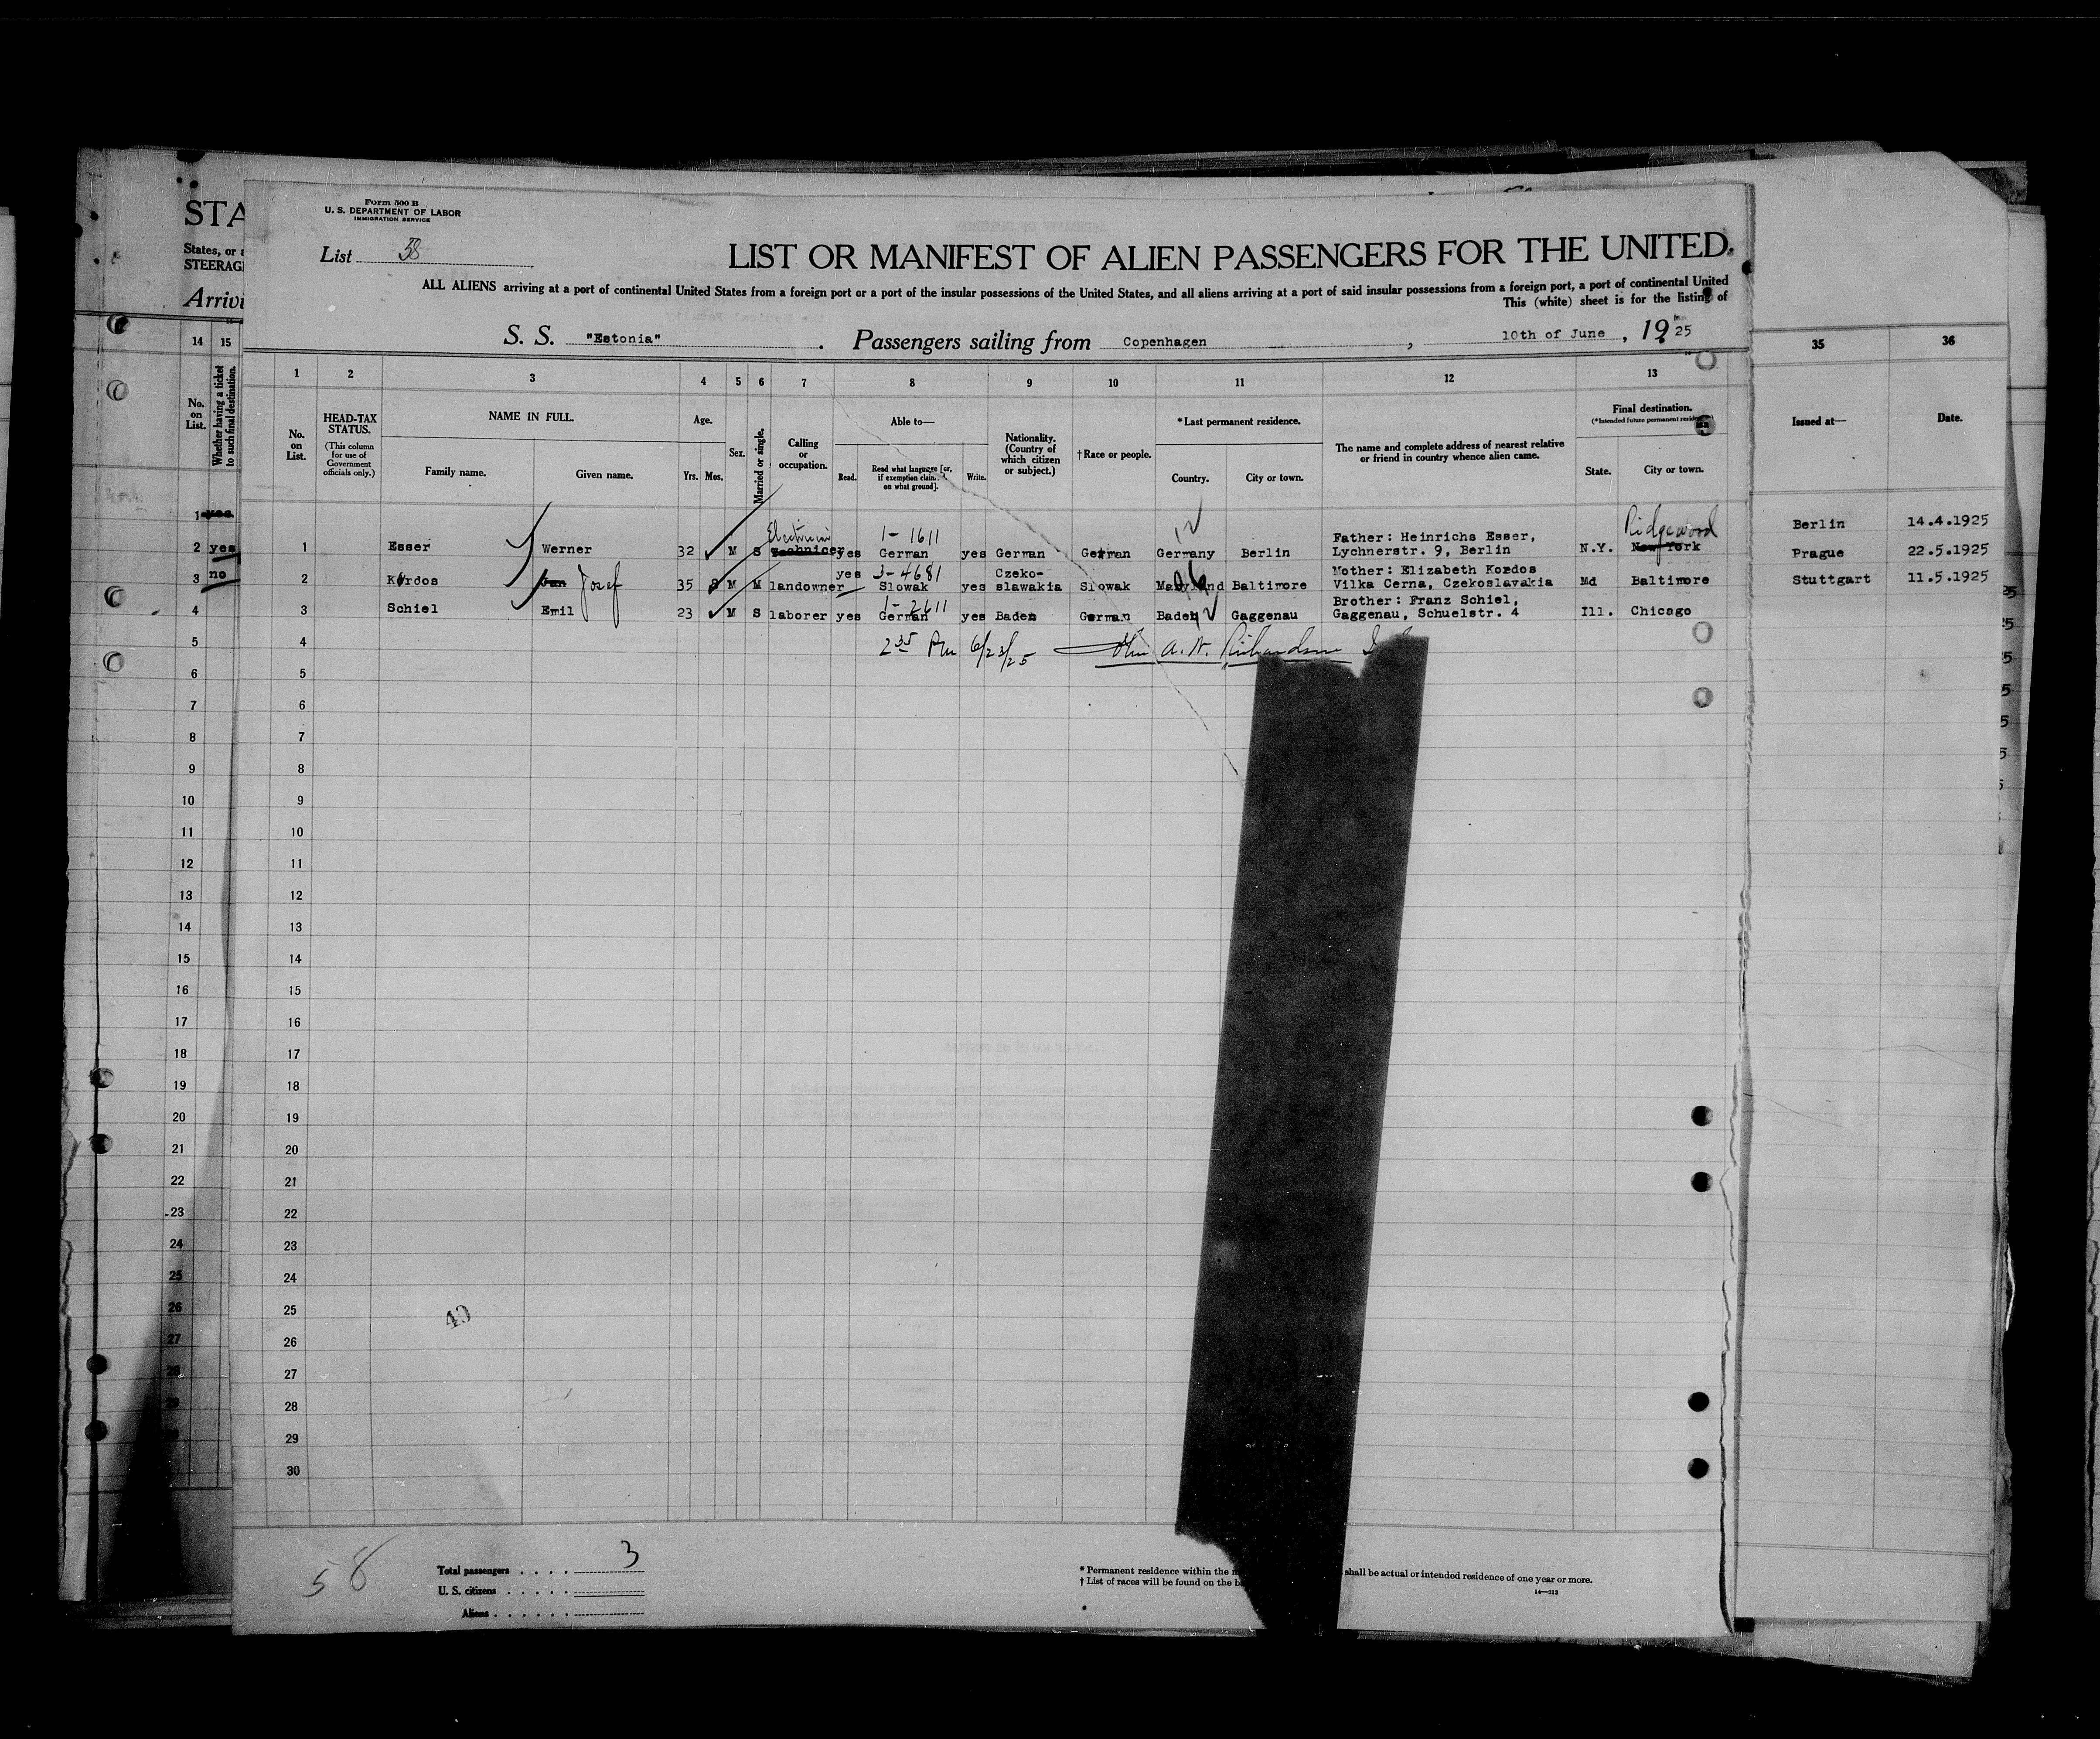 Form 500 B
U. S. DEPARTMENT OF LABOR
IMMIGRATION SERVICE
STA
States, or a
STEERAG
Arrivi
List 58
LIST OR MANIFEST OF ALIEN PASSENGERS FOR THE UNITED
ALL ALIENS arriving at a port of continental United States from a foreign port or a port of the insular possessions of the United States, and all aliens arriving at a port of said insular possessions from a foreign port, a port of continental United
This (white) sheet is for the listing of
S. S. "Estonia" . Passengers sailing from Copenhagen , 10th of June , 1925
14 15 1 2 3 4 5 6 7 8 9 10 11 12 13 35 36
No. on List.
Whether having a ticket to such final destination.
No. on List.
HEAD-TAX STATUS.
(This column for use of Government officials only.)
NAME IN FULL.
Family name. Given name.
Age.
Yrs. Mos.
Sex.
Married or single.
Calling or occupation.
Able to—
Read. Read what language [or, if exemption claimed, on what ground]. Write.
Nationality. (Country of which citizen or subject.)
†Race or people.
*Last permanent residence.
Country. City or town.
The name and complete address of nearest relative or friend in country whence alien came.
Final destination.
(*Intended future permanent residence)
State. City or town.
Issued at— Date.
Electrician 1-1611 Ridgewood
1 Esser Werner 32 M S Technicer yes German yes German German Germany Berlin Father: Heinrichs Esser, Lychnerstr. 9, Berlin N.Y. New York
3-4681
2 Kordos Jan Josef 35 M M landowner yes Slowak yes Czeko-slawakia Slowak Maryland Baltimore Mother: Elizabeth Kordos Vilka Cerna, Czekoslavakia Md Baltimore
1-2611
3 Schiel Emil 23 M S laborer yes German yes Baden German Baden Gaggenau Brother: Franz Schiel, Gaggenau, Schuelstr. 4 Ill. Chicago
1 yes
2 yes
3 no
Berlin 14.4.1925
Prague 22.5.1925
Stuttgart 11.5.1925
2 35 PM 6/23/25 A. N. Richardson
4
5
6
7
8
9
10
11
12
13
14
15
16
17
18
19
20
21
22
23
24
25
26
27
28
29
30
4
5
6
7
8
9
10
11
12
13
14
15
16
17
18
19
20
21
22
23
24
25
26
27
28
29
40
58
Total passengers . . . . 3
U. S. citizens . . . . .
Aliens . . . . . .
* Permanent residence within the shall be actual or intended residence of one year or more.
† List of races will be found on the
14—213